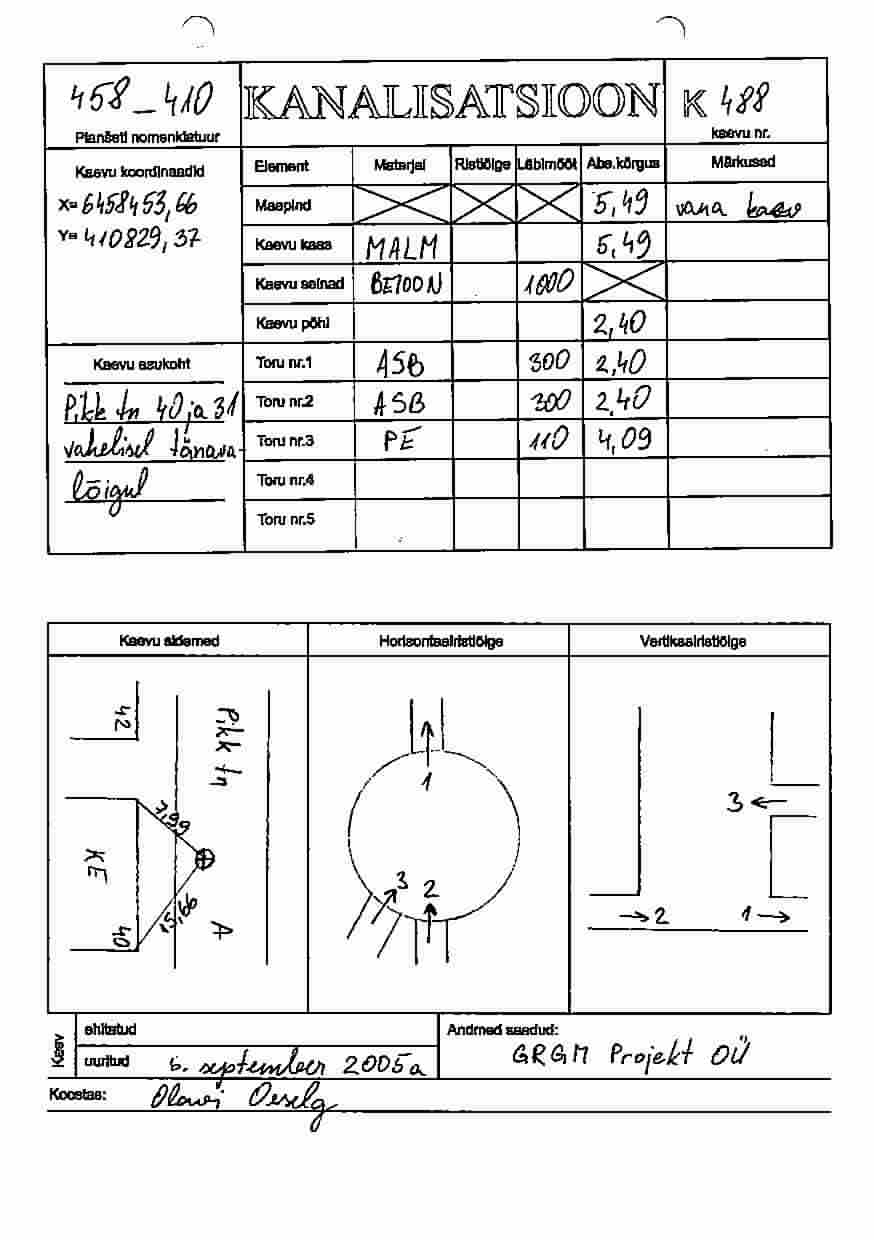 458_410 KANALISATSIOON K 488
Planšeti nomenklatuur kaevu nr.
Kaevu koordinaadid Element Materjal Ristlõige Läbimõõt Abs.kõrgus Märkused
X= 6458453,66 Maapind 5,49 vana kaev
Y= 410829,37 Kaevu kaas MALM 5,49
Kaevu seinad BETOON 1000
Kaevu põhi 2,40
Kaevu asukoht Toru nr.1 ASB 300 2,40
Pikk tn 40 ja 31 Toru nr.2 ASB 300 2,40
vahelisel tänava- Toru nr.3 PE 110 4,09
lõigul Toru nr.4
Toru nr.5
Kaevu sidemed Horisontaalristlõige Vertikaalristlõige
42 Pikk tn
7,99
KE
15,66
40 A
1
3 2
3
2 1
Kaev
ehitatud Andmed saadud:
uuritud 6. september 2005a GRGM Projekt OÜ
Koostas: